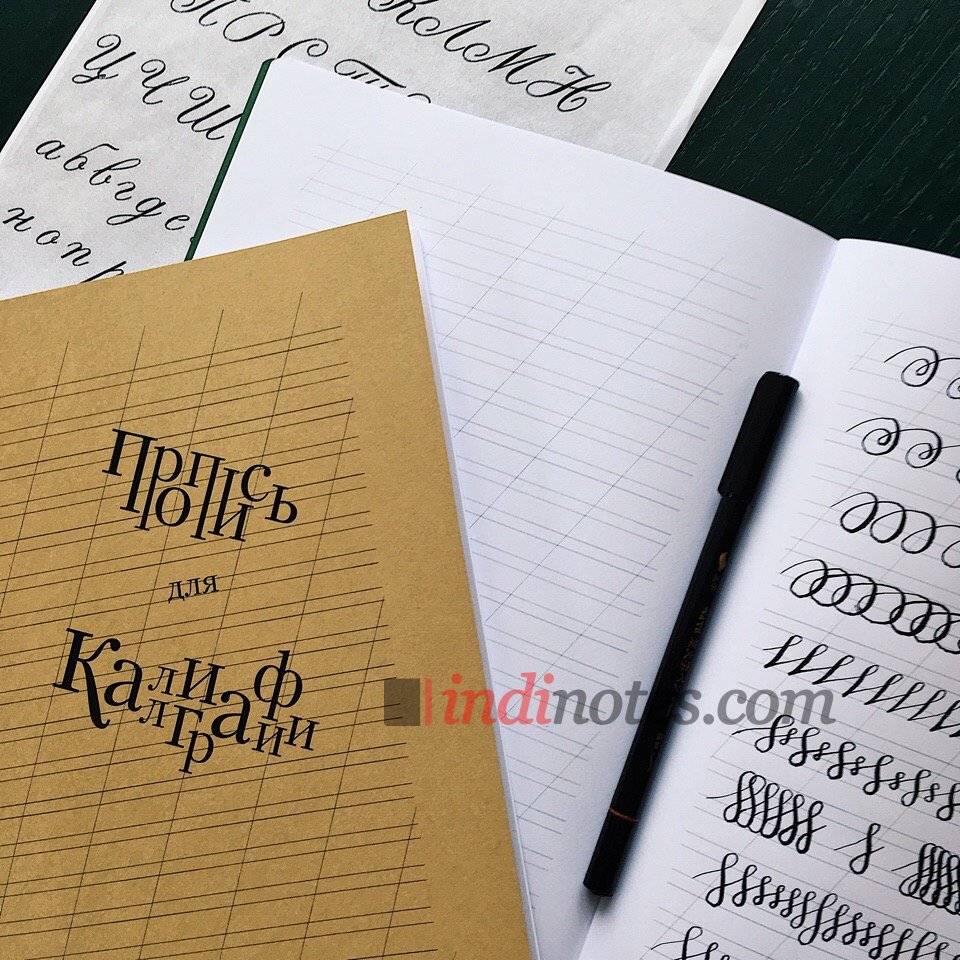 К Л М Н
П Р С Т
Ц Ч Ш
а б в г д е
н о п р
Пропись
для
Каллиграфии
indinotes.com